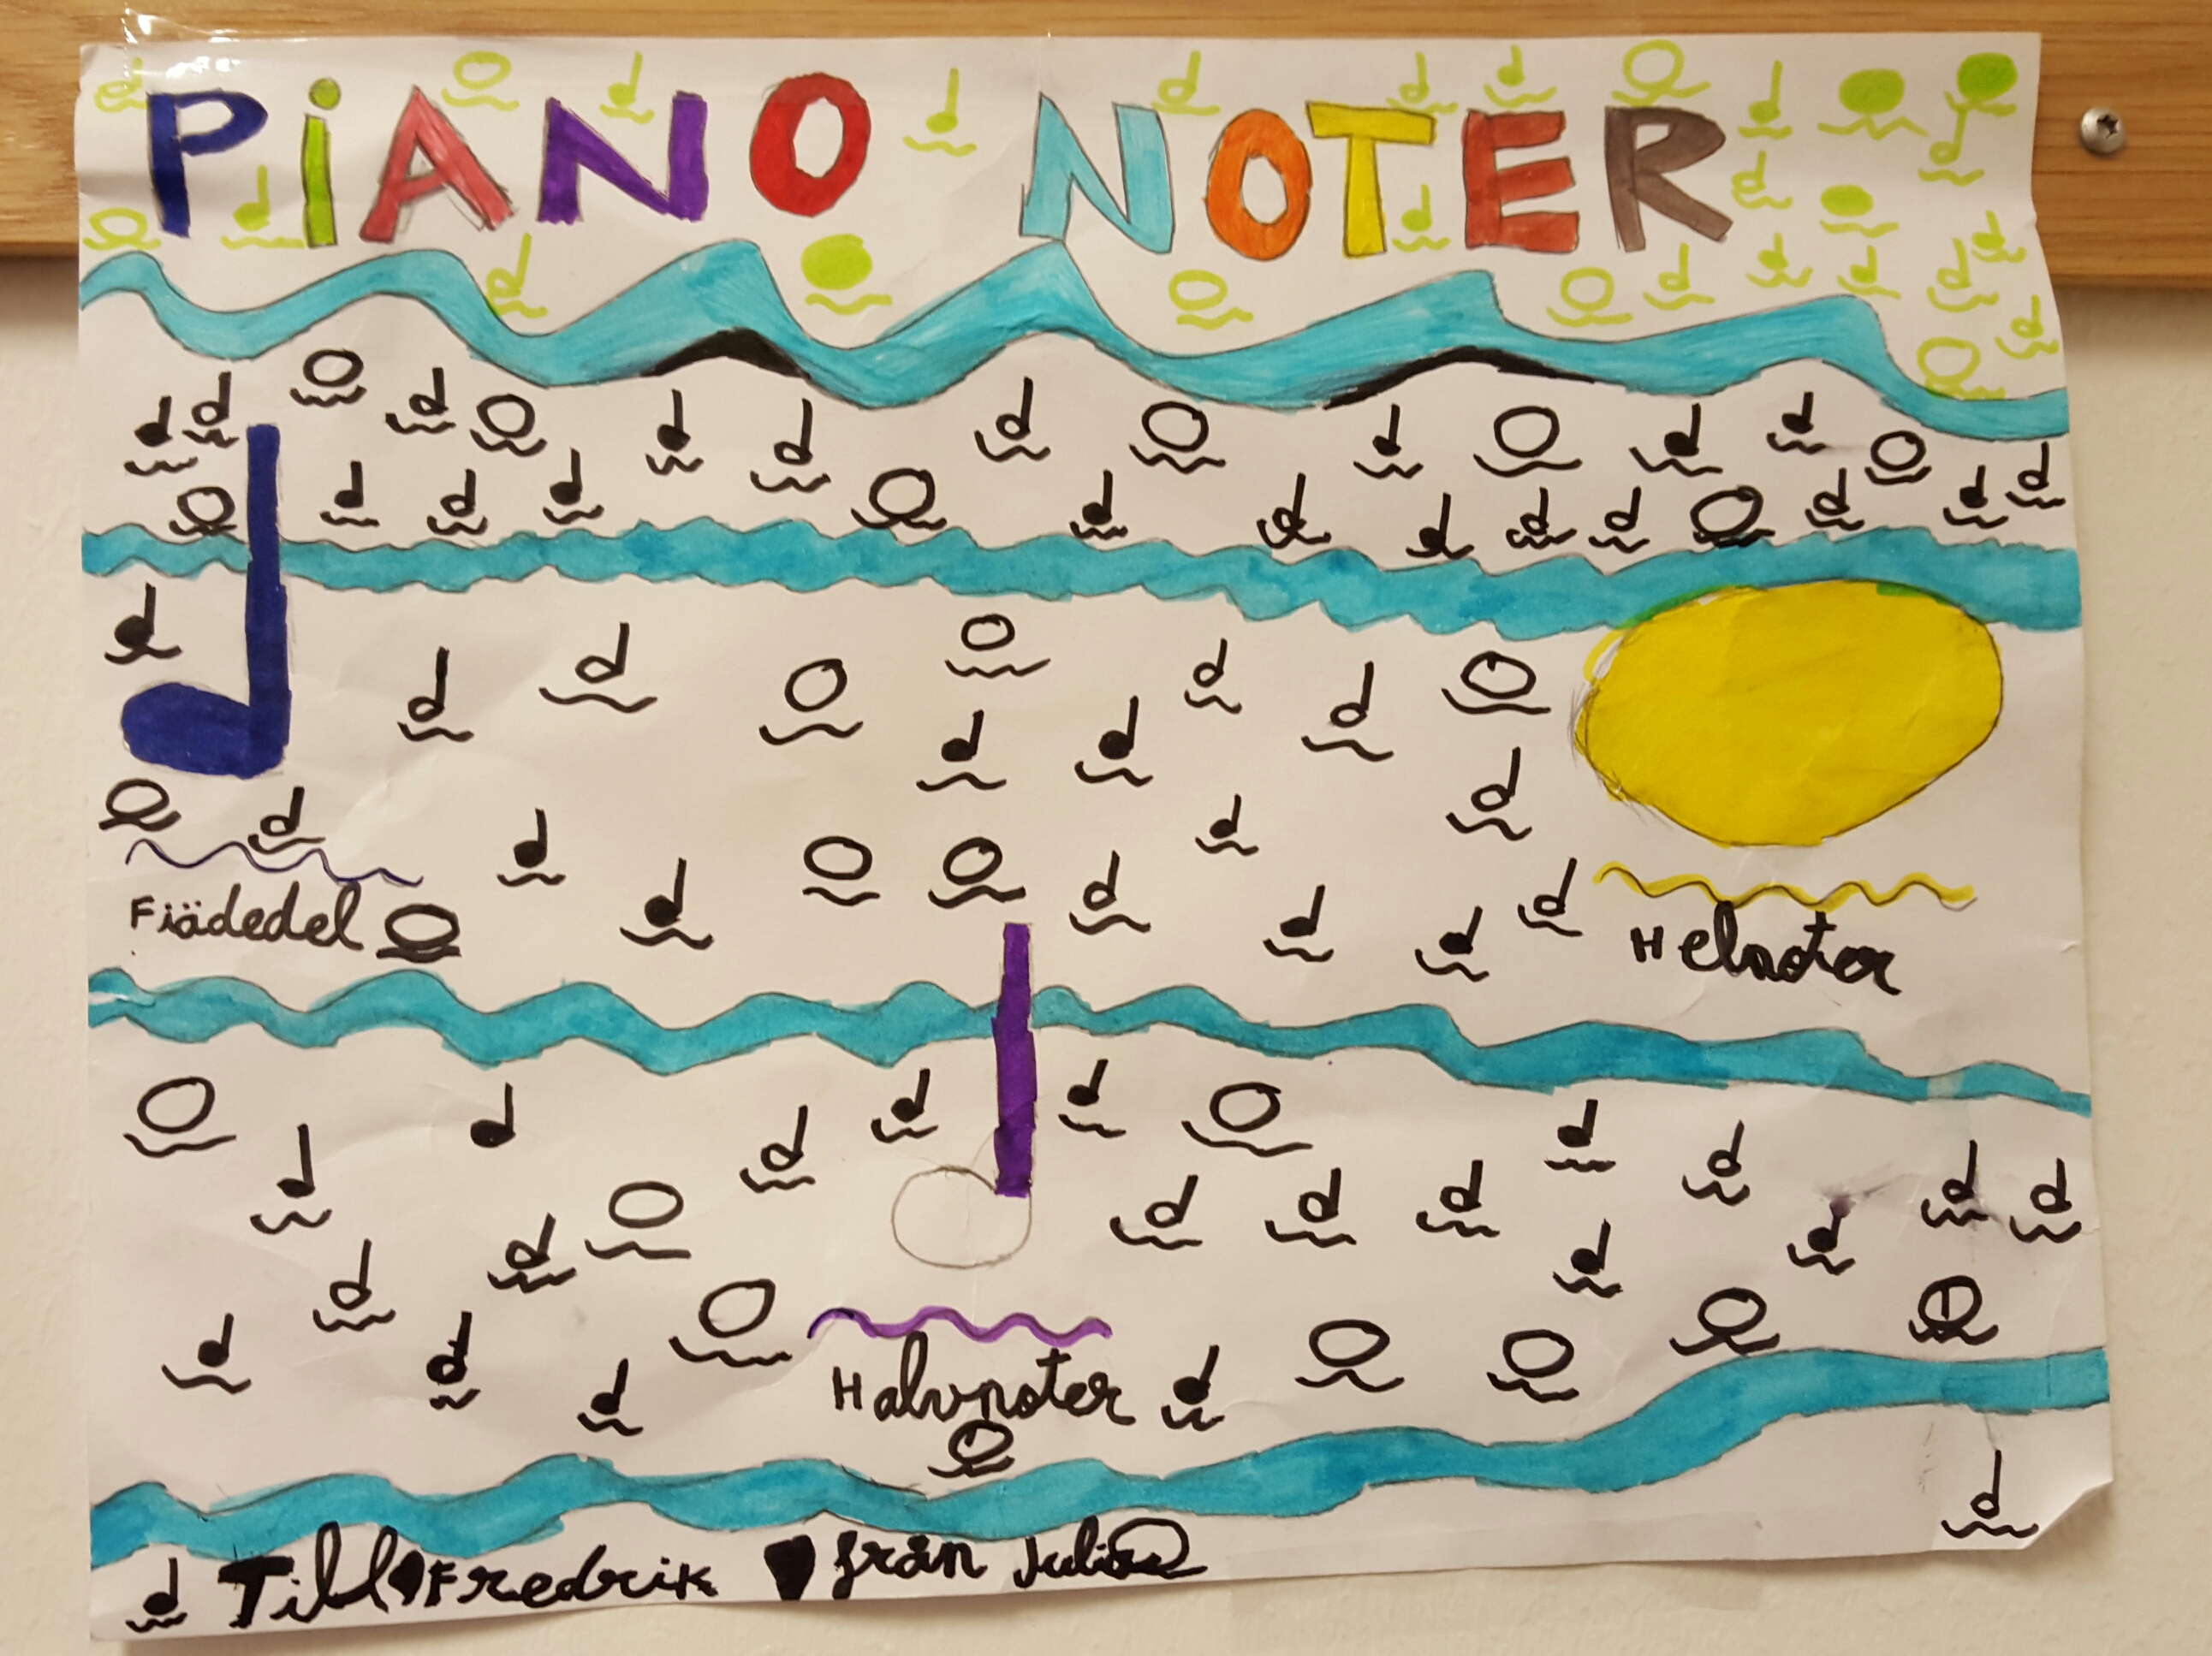 PiANO NOTER
Fiädedel
Helnoter
Halvnoter
Till Fredrik från Julia